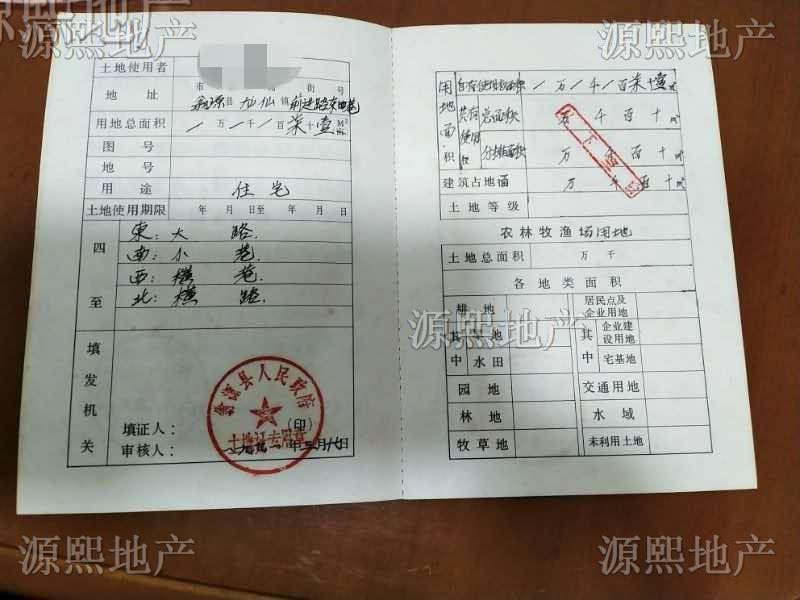 源熙地产
源熙地产
土地使用者
地 址 市 街 号
翁源县 龙仙镇 前进路东四巷
用地总面积 / 万 / 千 / 百 柒 十 壹 M²
图 号
地 号
用 途 住宅
土地使用期限 年 月 日至 年 月 日
四至
東:大 路.
南:小 巷.
西:横 巷.
北:横 路.
填发机关
翁源县人民政府
土地证专用章
(印)
填证人:
审核人: 年三月十八日
用地面积
自有使用面积 / 万 / 千 / 百 柒 十 壹 m²
共有使用
总面积 万 千 百 十 m²
分摊面积 万 千 百 十 m²
建筑占地面 万 千 百 十 m²
土地等级
农林牧渔场用地
土地总面积 万 千
各地类面积
耕 地 居民点及企业用地
其中 旱地 其中 企业建设用地
水田 宅基地
园 地 交通用地
林 地 水 域
牧草地 未利用土地
源熙地产
源熙地产
源熙地产